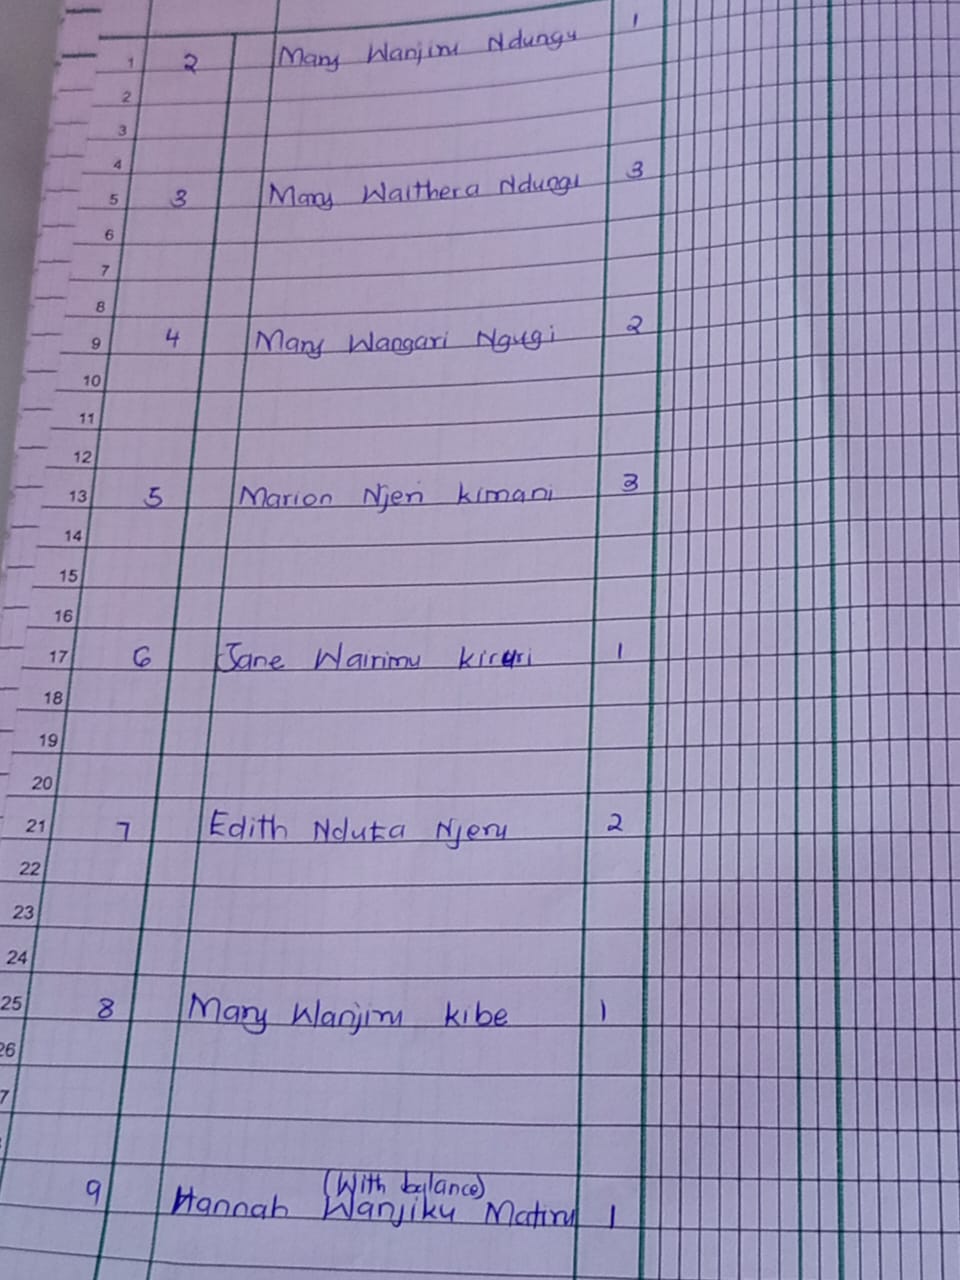 1 2 Mary Wanjiru Ndungu 1
2
3
4
5 3 Mary Waithera Ndungu 3
6
7
8
9 4 Mary Wangari Ngugi 2
10
11
12
13 5 Marion Njeri Kimani 3
14
15
16
17 6 Jane Wairimu Kiruri 1
18
19
20
21 7 Edith Nduta Njeru 2
22
23
24
25 8 Mary Wanjiru Kibe 1
26
7
(With balance)
9 Hannah Wanjiku Matiru 1